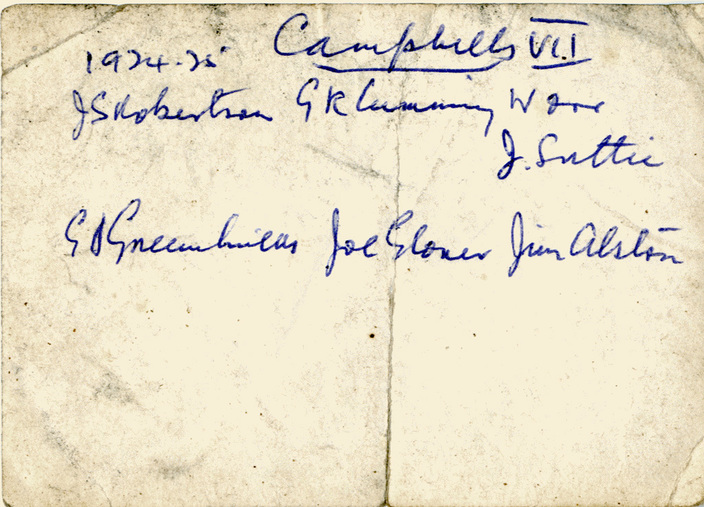 1924-25 Campbells VI.1
J S Robertson G K Cumming W Orr
J. Suttie
G A Greenhill Joe Glover Jim Alston